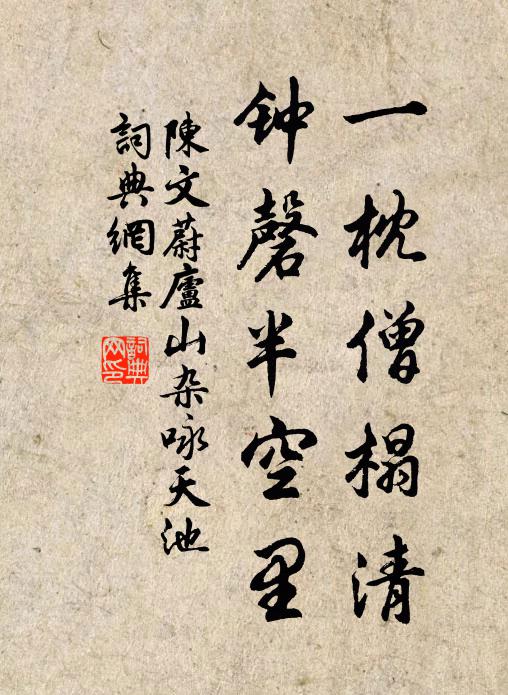 一枕僧榻清
钟磬半空里
陳文蔚廬山杂咏天池
詞典網集
詞典
网印